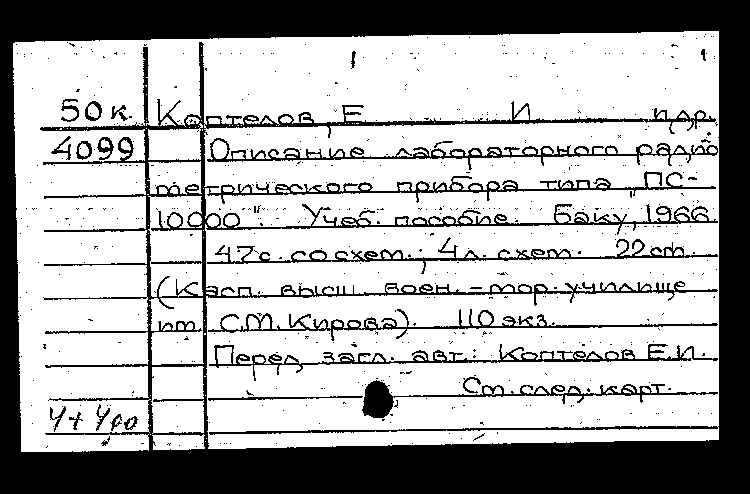 50 к. Коптелов, Е И и др.
4099 Описание лабораторного радио
метрического прибора типа „ПС-
10000". Учеб. пособие. Баку, 1966.
47 с. со схем.; 4 л. схем. 22 см.
(Касп. высш. воен.-мор. училище
им. С.М. Кирова). 110 экз.
Перед загл. авт.: Коптелов Е.И.
См. след. карт.